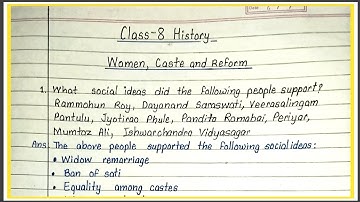 Class-8 History
Women, Caste and Reform
1. What social ideas did the following people support?
Rammohun Roy, Dayanand Sarswati, Veerasalingam
Pantulu, Jyotirao Phule, Pandita Ramabai, Periyar,
Mumtaz Ali, Ishwarchandra Vidyasagar
Ans The above people supported the following social ideas:
• Widow remarriage
• Ban of sati
• Equality among castes